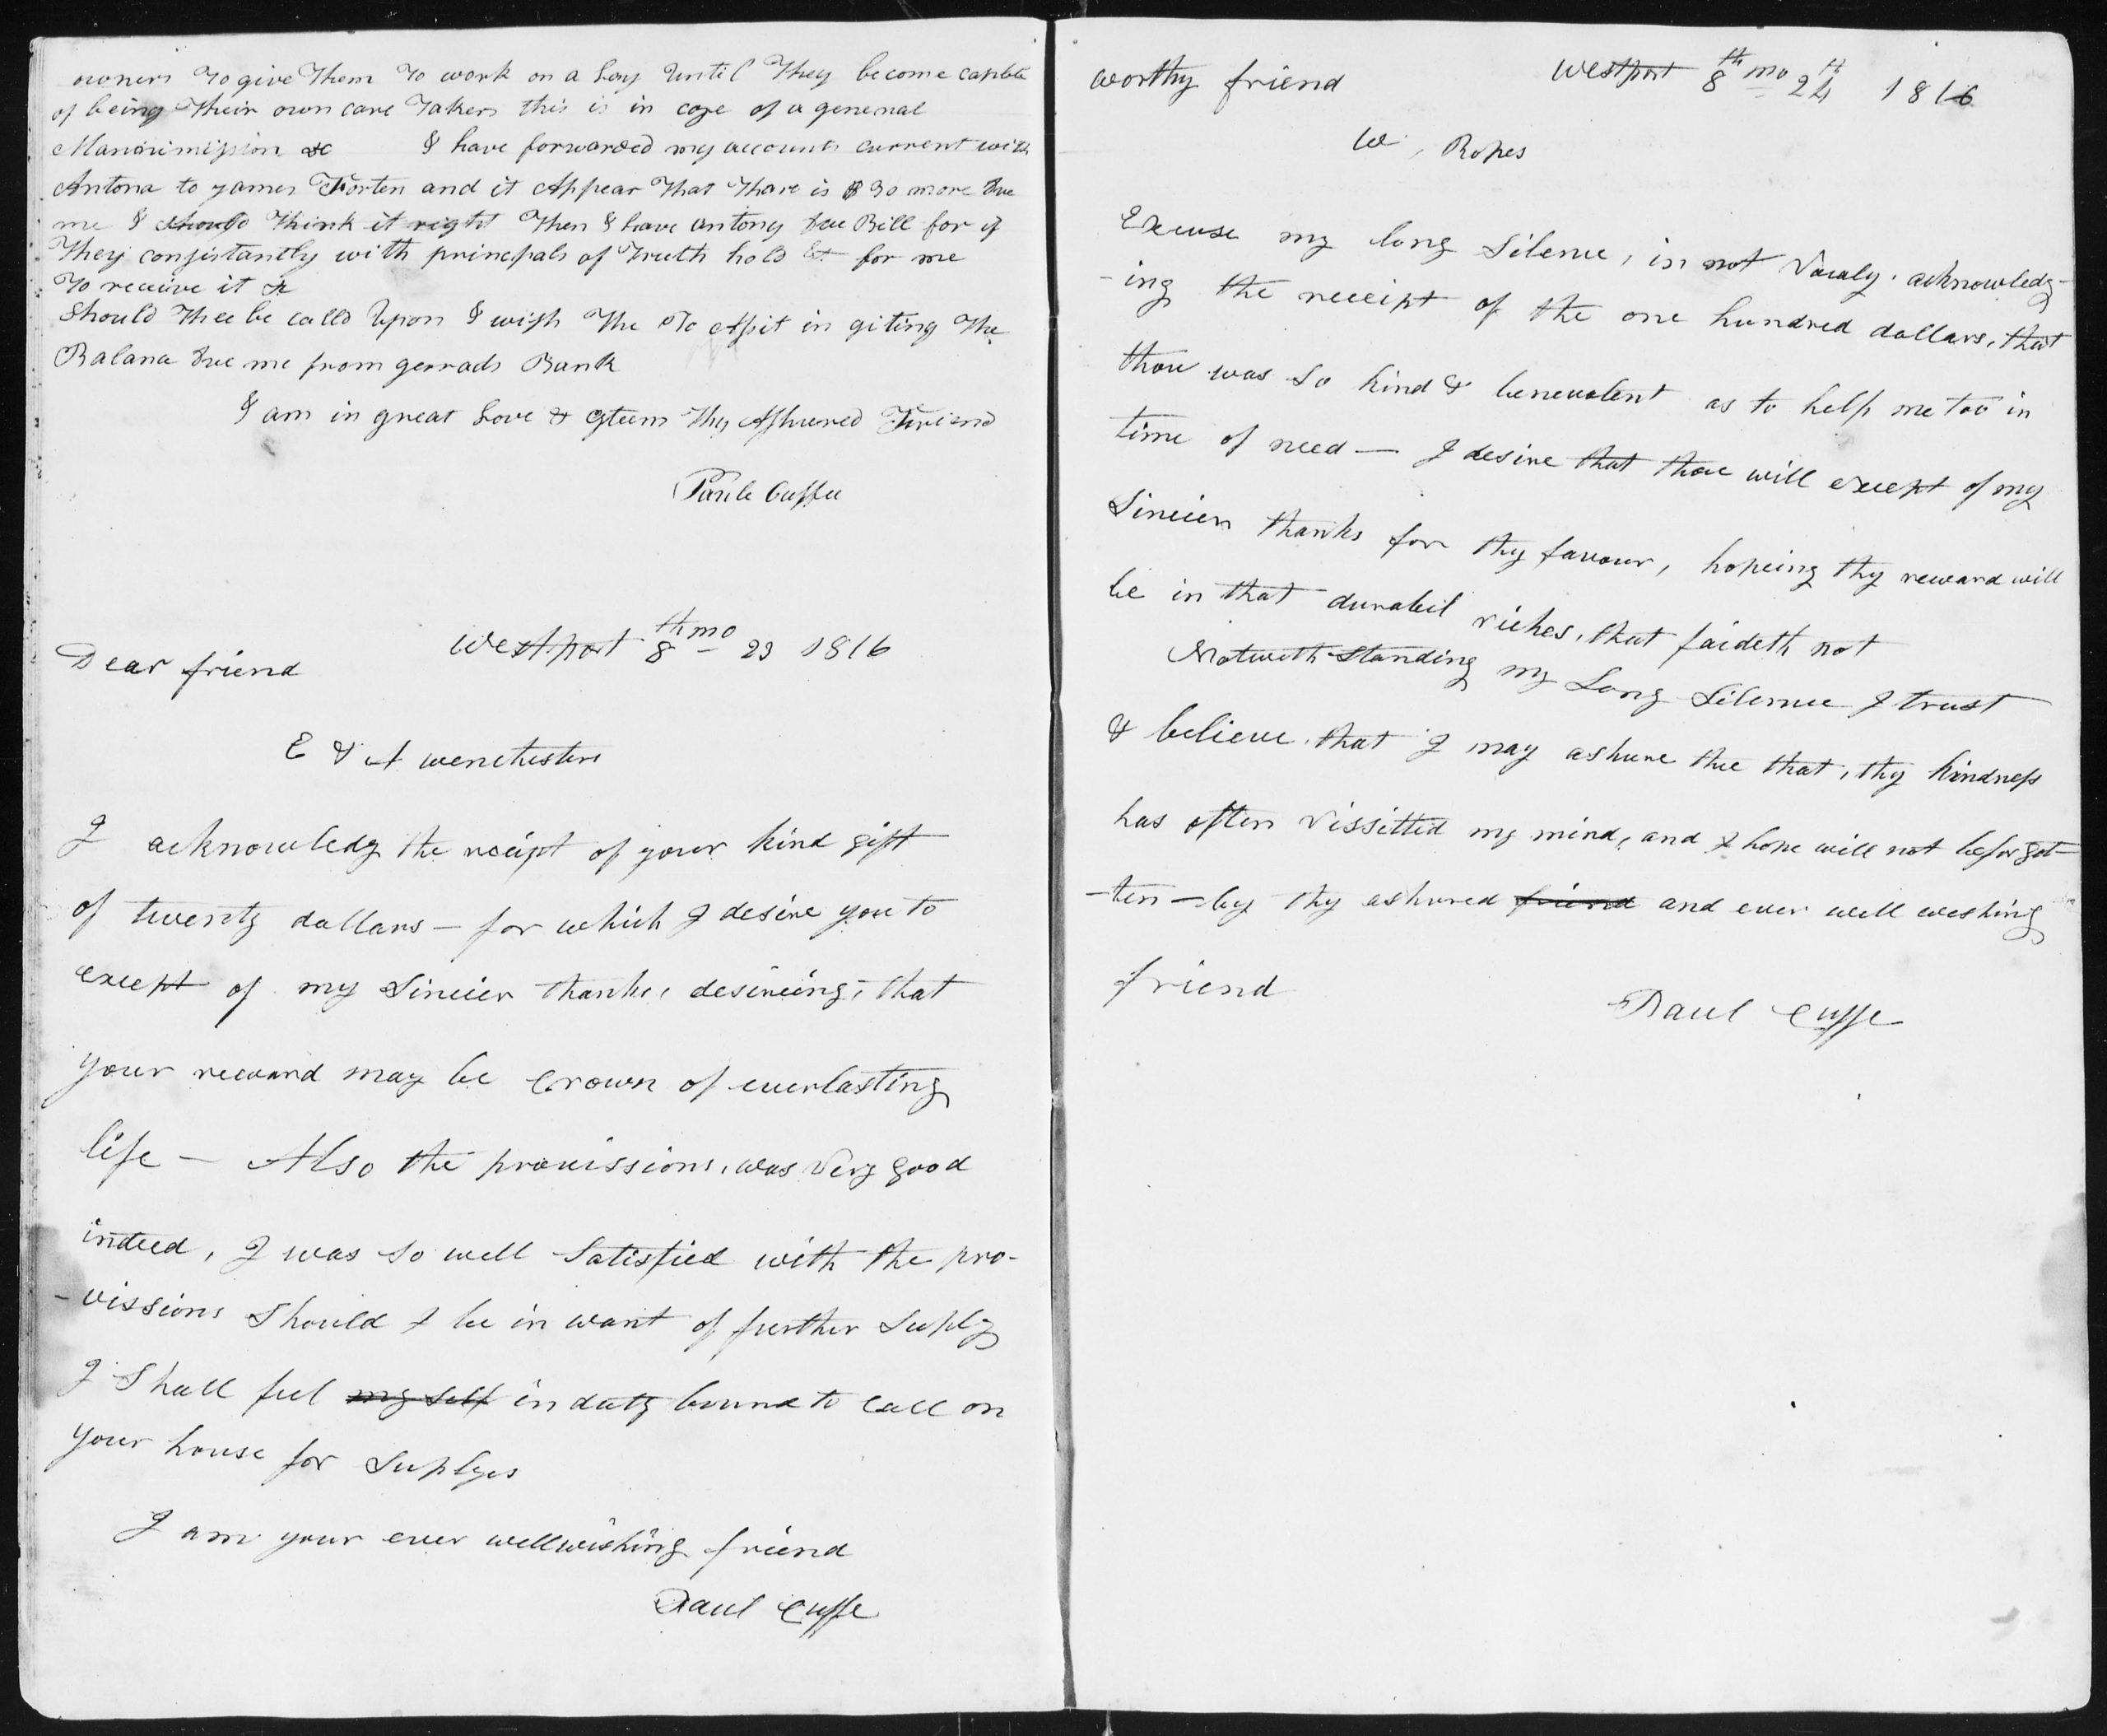 owners To give Them To work on a Lay Until They become capble
of being Their own care Takers this is in case of a general
Manorimission &c I have forwarded my accounts current with
Antona to James Forten and it Appear That Thare is $ 30 more Due
me I should Think it right Then I have antony Due Bill for if
They consistantly with principals of Truth hold for me
To receive it &c
Should Thee be calld Upon I wish The To Assit in giting The
Balance Due me from gerrads Bank
I am in great Love & Esteem Thy Asshured Friend
Paul Cuffee
Westport 8th mo 23 1816
Dear friend
E & A wenchesters
I acknowledg the receipt of your kind gift
of twenty dollars — for which I desire you to
except of my Sincier thanks, desireing, that
your reward may be Crown of everlasting
life — Also the provissions, was Very good
indeed, I was so well Satisfied with the pro-
-vissions Should I be in want of further Suply
I Shall feel my self in duty bound to call on
your house for Suplyes
I am your ever wellwishing friend
Paul Cuffe
Westport 8th mo 24th 1816
worthy friend
W, Ropes
Excuse my long Silence, in not acknowledg-
-ing the receipt of the one hundred dollars, that
thou was so kind & benevolent as to help me too in
time of need — I desire that thou will except of my
Sincier thanks for thy favour, hopeing thy reward will
be in that durabil riches, that faideth not
Notwith-standing my Long Silence I trust
& believe that I may ashure thee that, thy kindness
has often vissitted my mind, and I hope will not be forgot-
-ten — by thy ashured friend and ever well weshing
friend
Paul Cuffe